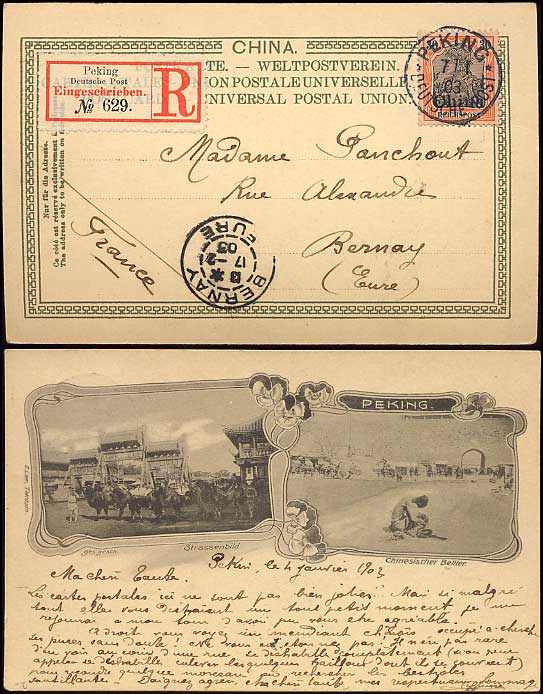 CHINA.
WELTPOSTVEREIN.
UNION POSTALE UNIVERSELLE
UNIVERSAL POSTAL UNION
Peking
Deutsche Post
Eingeschrieben.
№ 629.
R
PEKING
7/1
03
DEUTSCHE
China
REICHSPOST
Nur für die Adresse.
Ce côté est réservé exclusivement à
The address only to be written on
Madame Panchout
Rue Alexandre
Bernay
(Eure)
France
BERNAY
EURE
17
03
PEKING.
Strassenbild
Chinesischer Bettler.
Pékin, le 4 Janvier 1903
Ma chère Tante.
Les cartes postales ici ne sont pas bien jolies. Mais si malgré
tout elles vous distraient un tout petit moment je me
à mon tour d'avoir pu vous être agréable.
A droit vous voyez un mendiant chinois occupé à chercher
ses puces sans doute! Cela vous étonne pas. Il n'est pas rare
d'en voir au coin d'une rue se déshabiller complètement (si on peut
appeler se déshabiller, enlever les quelques haillons dont ils se couvrent)
pour rechercher les bestioles
chère tante mes respectueux hommages